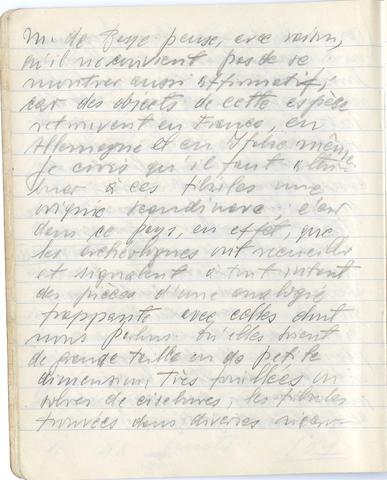 M. de Baye pense, avec raison,
qu'il ne convient pas de se
montrer aussi affirmatif,
car des objets de cette espèce
se trouvent en France, en
Allemagne et en Italie même.
Je crois qu'il faut attri-
buer à ces fibules une
origine scandinave; c'est
dans ce pays, en effet, que
les archéologues ont recueilli
et signalent à tout instant
des pièces d'une analogie
frappante avec celles dont
nous parlons. Qu'elles soient
de grande taille ou de petite
dimension, très fouillées ou
sobres de ciselures, les fibules
trouvées dans diverses